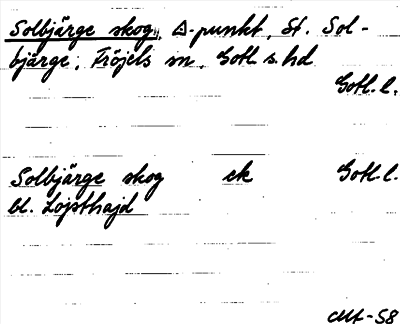 Solbjärge skog, Δ-punkt, St. Sol-
bjärge, Fröjels sn, Gotl s. hd
Gotl. l.
Solbjärge skog ek Gotl. l.
bl. Lojsthajd
-58